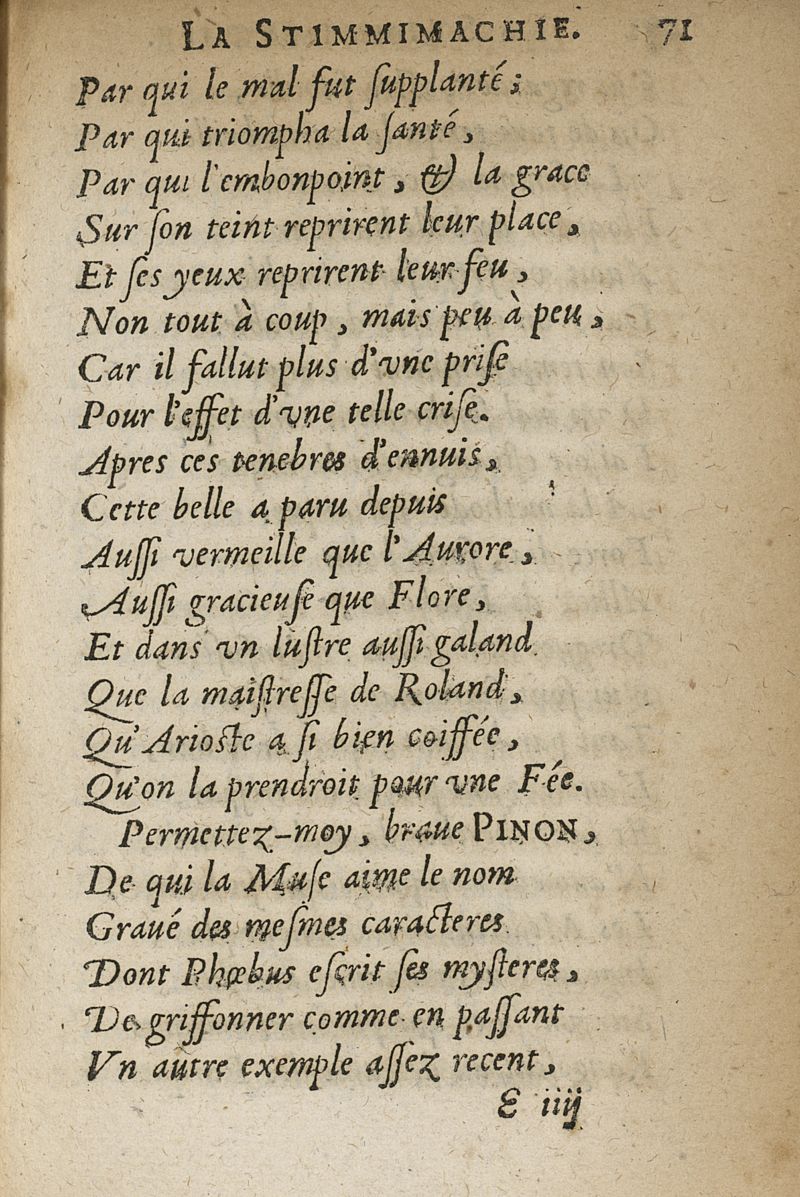 LA STIMMIMACHIE. 71
Par qui le mal fut ſupplanté;
Par qui triompha la ſanté,
Par qui l'embonpoint, & la grace
Sur ſon teint reprirent leur place,
Et ſes yeux reprirent leur feu,
Non tout à coup, mais peu à peu,
Car il fallut plus d'vne priſe
Pour l'effet d'vne telle criſe.
Apres ces tenebres d'ennuis,
Cette belle a paru depuis
Auſſi vermeille que l'Aurore,
Auſſi gracieuſe que Flore,
Et dans vn luſtre auſſi galand
Que la maiſtreſſe de Roland,
Qu'Arioſte a ſi bien coiffée,
Qu'on la prendroit pour vne Fée.
Permettez-moy, braue PINON,
De qui la Muſe aime le nom
Graué des meſmes caracteres
Dont Phœbus eſcrit ſes myſteres,
De griffonner comme en paſſant
Vn autre exemple aſſez recent,
E iiij